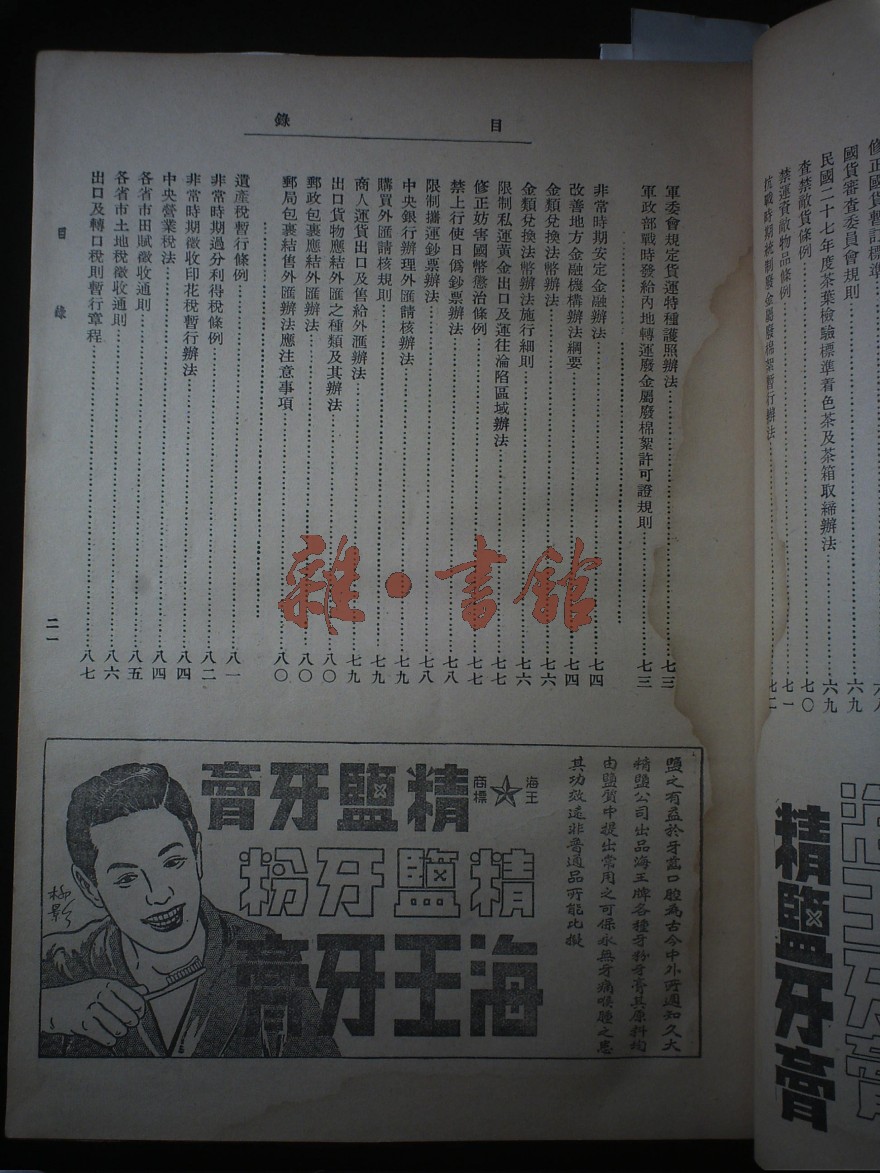 目錄
修正國貨暫訂標準
國貨審查委員會規則……六九
民國二十七年度茶葉檢驗標準着色茶及茶箱取締辦法……六九
查禁敵貨條例……七〇
禁運資敵物品條例……七一
抗戰時期統制廢金屬廢棉絮暫行辦法……七二
軍委會規定貨運特種護照辦法……七三
軍政部戰時發給內地轉運廢金屬廢棉絮許可證規則……七三
非常時期安定金融辦法……七四
改善地方金融機構辦法綱要……七四
金類兌換法幣辦法……七六
金類兌換法幣辦法施行細則……七六
限制私運黃金出口及運往淪陷區域辦法……七七
修正妨害國幣懲治條例……七七
禁上行使日僞鈔票辦法……七八
限制攜運鈔票辦法……七八
中央銀行辦理外匯請核辦法……七九
購買外匯請核規則……七九
商人運貨出口及售給外滙辦法……七九
出口貨物應結外匯之種類及其辦法……八〇
郵政包裹應結外匯辦法……八〇
郵局包裹結售外匯辦法應注意事項……八〇
遺產稅暫行條例……八一
非常時期過分利得稅條例……八二
非常時期徵收印花稅暫行辦法……八四
中央營業稅法……八四
各省市田賦徵收通則……八五
各省市土地稅徵收通則……八六
出口及轉口稅則暫行章程……八七
目錄
二一
鹽之有益於牙齒口腔為古今中外所通知久大
精鹽公司出品海王牌各種牙粉牙膏其原料均
由鹽質中提出常用之可保永無牙痛喉腫之患
其功效遠非普通品所能比擬
海王
商標
精鹽牙膏
精鹽牙粉
海王牙膏
柳影
海王牙膏
精鹽牙膏
雜·書館